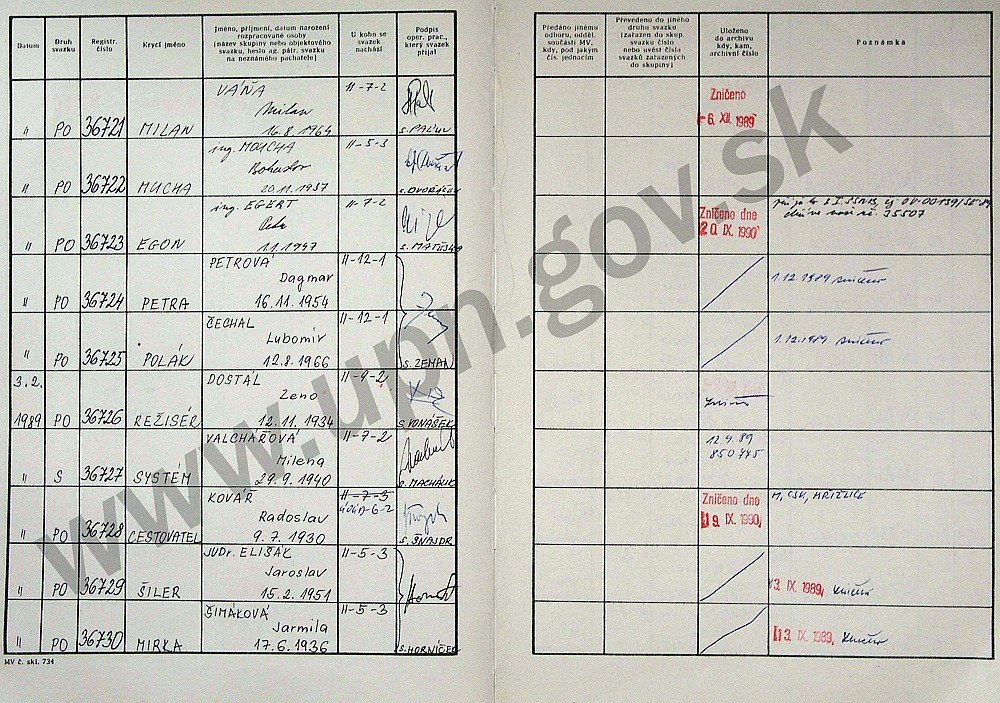 Datum
Druh svazku
Registr. číslo
Krycí jméno
Jméno, příjmení, datum narození
rozpracované osoby
(název skupiny nebo objektového
svazku, heslo ag. pátr. svazku
na neznámého pachatele)
U koho se
svazek
nachází
Podpis
oper. prac.,
který svazek
přijal
Předáno jinému
odboru, odděl.
součásti MV,
kdy, pod jakým
čís. jednacím
Převedeno do jiného
druhu svazku
(zařazen do skup.
svazku číslo
nebo uvést čísla
svazků zařazených
do skupiny)
Uloženo
do archivu
kdy, kam,
archivní číslo
Poznámka
VÁŇA II-7-2
Milan
" PO 36721 MILAN 16.8.1964
Zničeno
-6. XII. 1989
ing. MOUCHA II-5-3
Bohuslav
" PO 36722 MUCHA 20.11.1937 s. DVOŘÁČEK
ing. EGERT II-7-2
Petr
" PO 36723 EGON 1.1.1947 s. MATUŠKA
Zničeno dne
20. IX. 1990
35507
PETROVÁ II-12-1
Dagmar
" PO 36724 PETRA 16.11.1954
1.12.1989 zničeno
ČECHAL II-12-1
Lubomír
" PO 36725 POLÁK 12.8.1966 s. ZEMAN
1.12.1989 zničeno
3.2. DOSTÁL II-9-2
Zeno
1989 PO 36726 REŽISÉR 12.11.1934 s. VONÁŠEK
zničeno
VALCHÁŘOVÁ II-7-2
Milena
" S 36727 SYSTÉM 29.9.1940 s. MACHALÍK
12.9.89
850445
KOVÁŘ II-7-3
Radoslav
" PO 36728 CESTOVATEL 9.7.1930 s. ŠNAJDR
Zničeno dne
19. IX. 1990
M, ČSK, MŘIŽLICE
JUDr. ELIŠÁK II-5-3
Jaroslav
" PO 36729 ŠILER 15.2.1951
13. IX. 1989, zničeno
ŠIMÁKOVÁ II-5-3
Jarmila
" PO 36730 MIRKA 17.6.1936 s. HORNÍČEK
13. IX. 1989, zničeno
MV č. skl. 734
www.upn.gov.sk